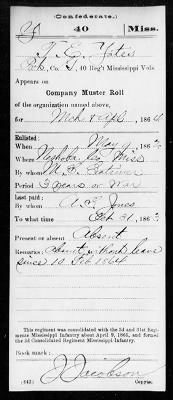 (Confederate.)
Y 40 Miss.
T. G. Yates
Pvt, Co. G, 40 Reg't Mississippi Vols
Appears on
Company Muster Roll
of the organization named above,
for Mch & Apl, 1864
Enlisted:
When May 9, 186
Where Neshoba Co Miss
By whom
Period 3 years or War
Last paid:
By whom A. B. Jones
To what time 31, 186
Present or absent Absent
Remarks: Absent without leave
since 10 Feb 1864
This regiment was consolidated with the 3d and 31st Regiments
Mississippi Infantry about April 9, 1865, and formed
the 3d Consolidated Regiment Mississippi Infantry.
Book mark:
J. Jacobson
(642) Copyist.